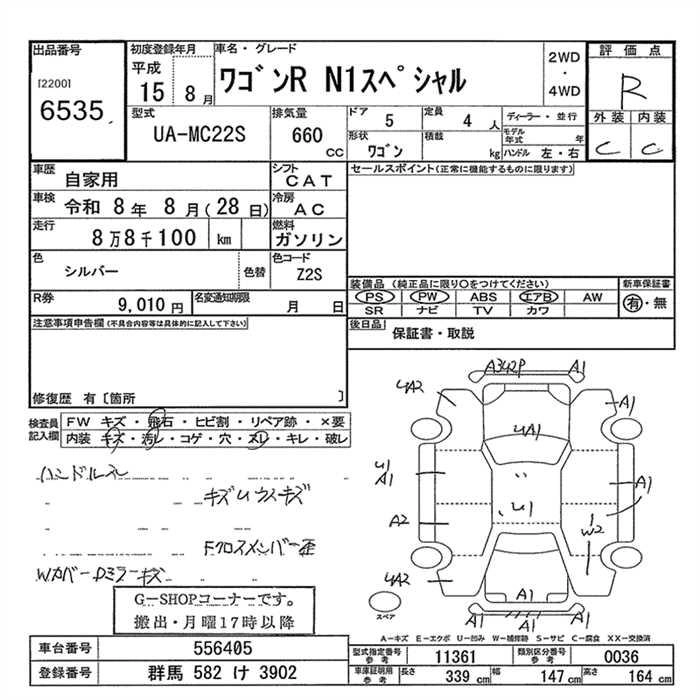 出品番号 初度登録年月 車名・グレード 評価点
[2200] 6535
平成 15 8月
ワゴンR N1スペシャル
2WD・4WD
R
外装 内装
C C
型式 UA-MC22S
排気量 660 CC
ドア 5 定員 4人
ディーラー・並行
形状 ワゴン 積載 kg
モデル年式 年
ハンドル 左・右
車歴 自家用
シフト CAT
セールスポイント(正常に機能するものに限ります)
車検 令和 8年 8月(28日)
冷房 AC
走行 8万8千100 km
燃料 ガソリン
色 シルバー 色替
色コード Z2S
装備品(純正品に限り○をつけてください) 新車保証書
PS PW ABS エアB AW 有・無
SR ナビ TV カワ
R券 9,010円 名変通知期限 月 日
後日品 保証書・取説
注意事項申告欄(不具合内容等は具体的に記入して下さい)
修復歴 有〔箇所 〕
検査員記入欄
FW キズ・飛石・ヒビ割・リペア跡・×要
内装 キズ・汚レ・コゲ・穴・スレ・キレ・破レ
ハンドルスレ
キズUウスキズ
Fクロスメンバー歪
Wカバー・Dミラーキズ
A342P A1
4A2 A1
4A1
U1 A1 A1
U1
A2 W2
4A2 A1
A1
スペア
G-SHOPコーナーです。
搬出・月曜17時以降
A－キズ E－エクボ U－凹み W－補修跡 S－サビ C－腐食 XX－交換済
車台番号 556405
型式指定番号 参考 11361 類別区分番号 参考 0036
登録番号 群馬 582 け 3902
車庫証明用 参考 長さ 339 cm 幅 147 cm 高さ 164 cm